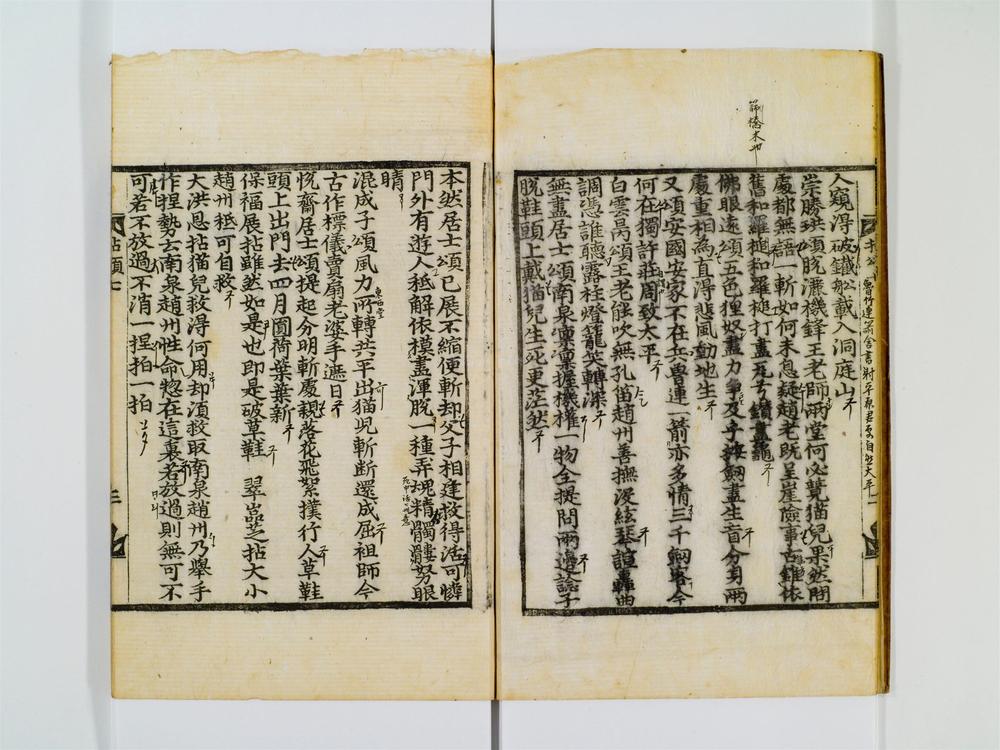 人窺淂破鐵船載入洞庭山
崇勝珙頌脫洒機鋒王老師兩堂何必覓猫兒果然開
處都無語一斬如何未息疑趙老旣呈崖儉事古錐依
舊和羅槌和羅槌打盡死兮鑽盡龜
佛眼遠頌五色狸奴盡力爭及乎按劒盡生盲分身兩
處重相爲直淂悲風動地生
又頌安國安家不在兵魯連一箭亦多情三千劒客今
何在獨許莊周致太平
白雲昺頌王老能吹無孔笛趙州善撫沒絃琴諠轟曲
調憑誰聽露柱燈籠笑轉深
無盡居士頌南泉凜凜握機權一物全提問兩邊誌子
脫鞋頭上戴猫兒生死更茫然
本然居士頌已展不縮便斬却父子相逢救得活可憐
門外有遊人秪解依模畫渾脫一種弄塊精髑髏努眼
睛
混成子頌風力所轉共平出猫兒斬斷還成屈祖師今
古作標儀賣扇老婆手遮日
悅齋居士頌提起分明斬處親落花飛絮撲行人草鞋
頭上出門去四月圓荷葉葉新
保福展拈雖然如是也即是破草鞋　翠嵓芝拈大小
趙州秪可自救
大洪恩拈猫兒救淂何用却湏救取南泉趙州乃擧手
作捏勢云南泉趙州性命惣在這裏若放過則無可不
可若不放過不消一捏拍一拍
拈頌七
三